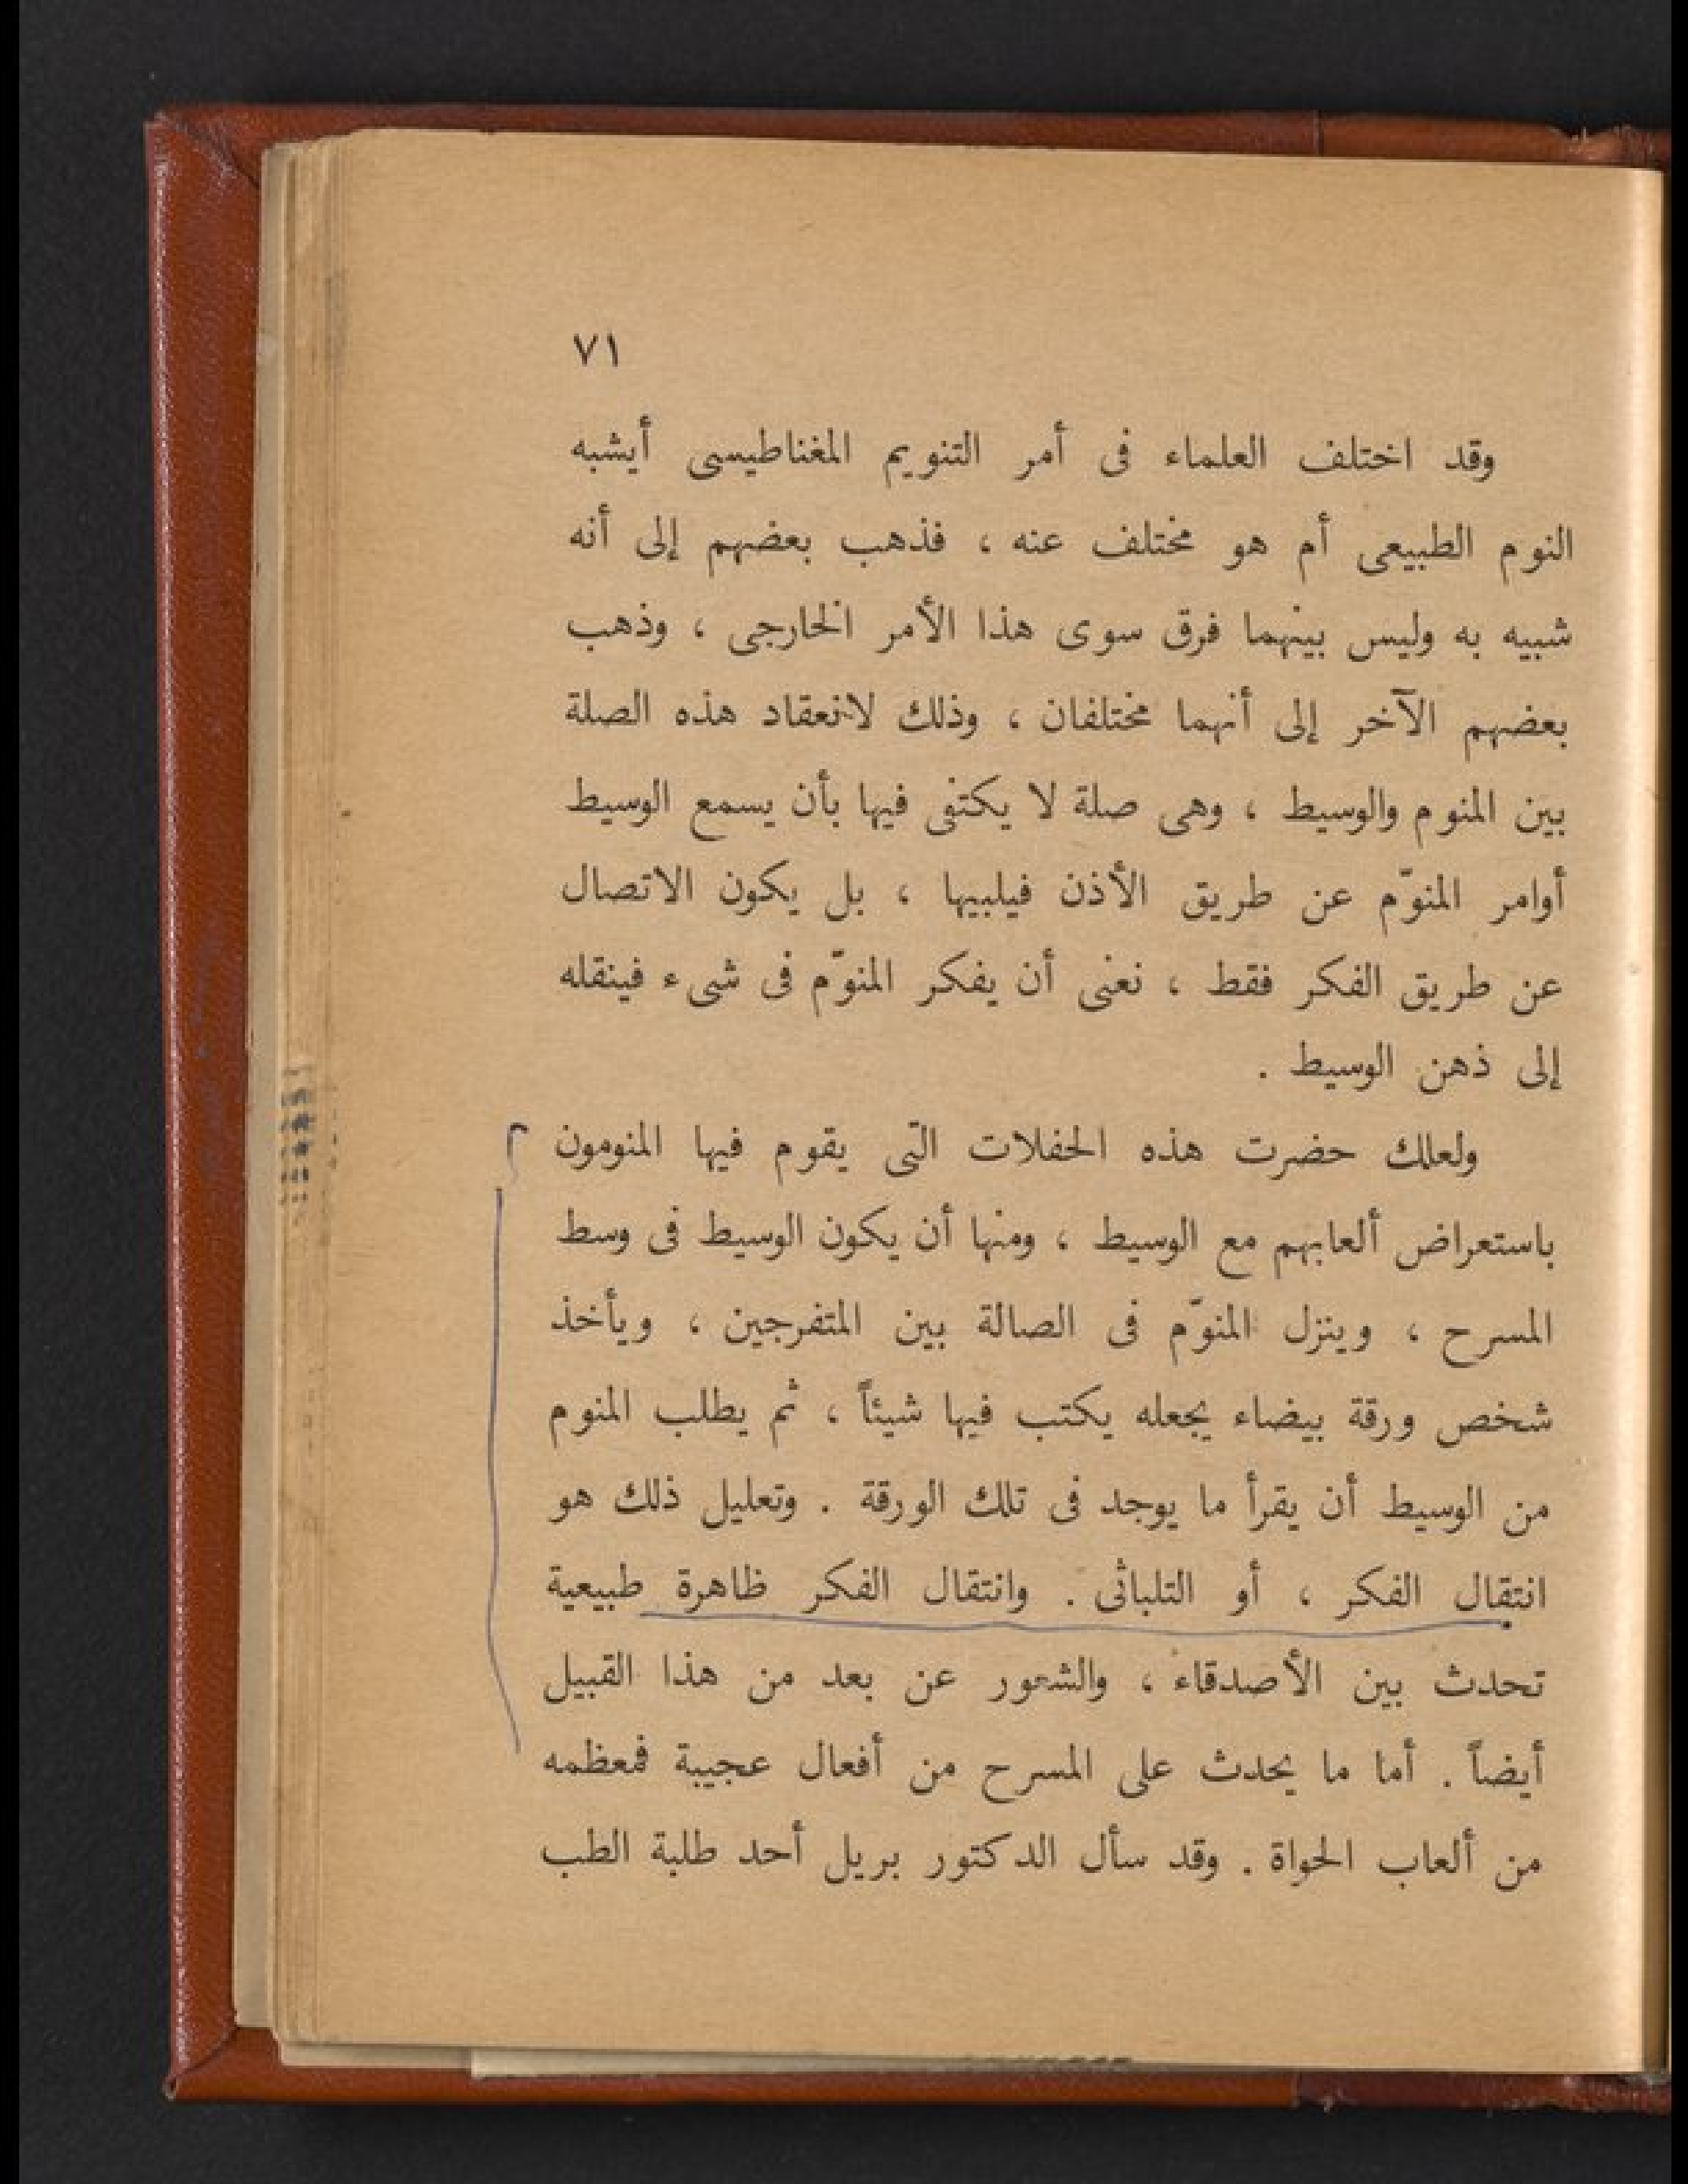 ٧١
وقد اختلف العلماء فى أمر التنويم المغناطيسى أيشبه
النوم الطبيعى أم هو مختلف عنه ، فذهب بعضهم إلى أنه
شبيه به وليس بينهما فرق سوى هذا الأمر الخارجى ، وذهب
بعضهم الآخر إلى أنهما مختلفان ، وذلك لانعقاد هذه الصلة
بين المنوم والوسيط ، وهى صلة لا يكتفى فيها بأن يسمع الوسيط
أوامر المنوّم عن طريق الأذن فيلبيها ، بل يكون الاتصال
عن طريق الفكر فقط ، نعنى أن يفكر المنوّم فى شىء فينقله
إلى ذهن الوسيط .
ولعلك حضرت هذه الحفلات التى يقوم فيها المنومون
باستعراض ألعابهم مع الوسيط ، ومنها أن يكون الوسيط فى وسط
المسرح ، وينزل المنوّم فى الصالة بين المتفرجين ، ويأخذ
شخص ورقة بيضاء يجعله يكتب فيها شيئاً ، ثم يطلب المنوم
من الوسيط أن يقرأ ما يوجد فى تلك الورقة . وتعليل ذلك هو
انتقال الفكر ، أو التلباثى . وانتقال الفكر ظاهرة طبيعية
تحدث بين الأصدقاء ، والشعور عن بعد من هذا القبيل
أيضاً . أما ما يحدث على المسرح من أفعال عجيبة فمعظمه
من ألعاب الحواة . وقد سأل الدكتور بريل أحد طلبة الطب